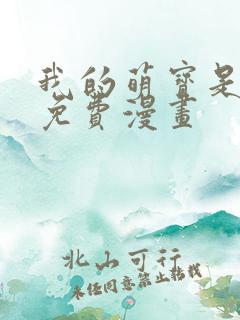 我的萌寶是
免費漫畫
北山可行
未经同意禁止转载